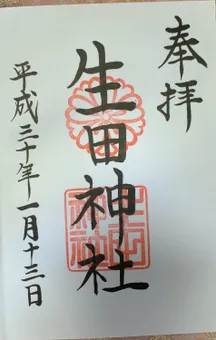 奉拝
生田神社
平成三十年一月十三日